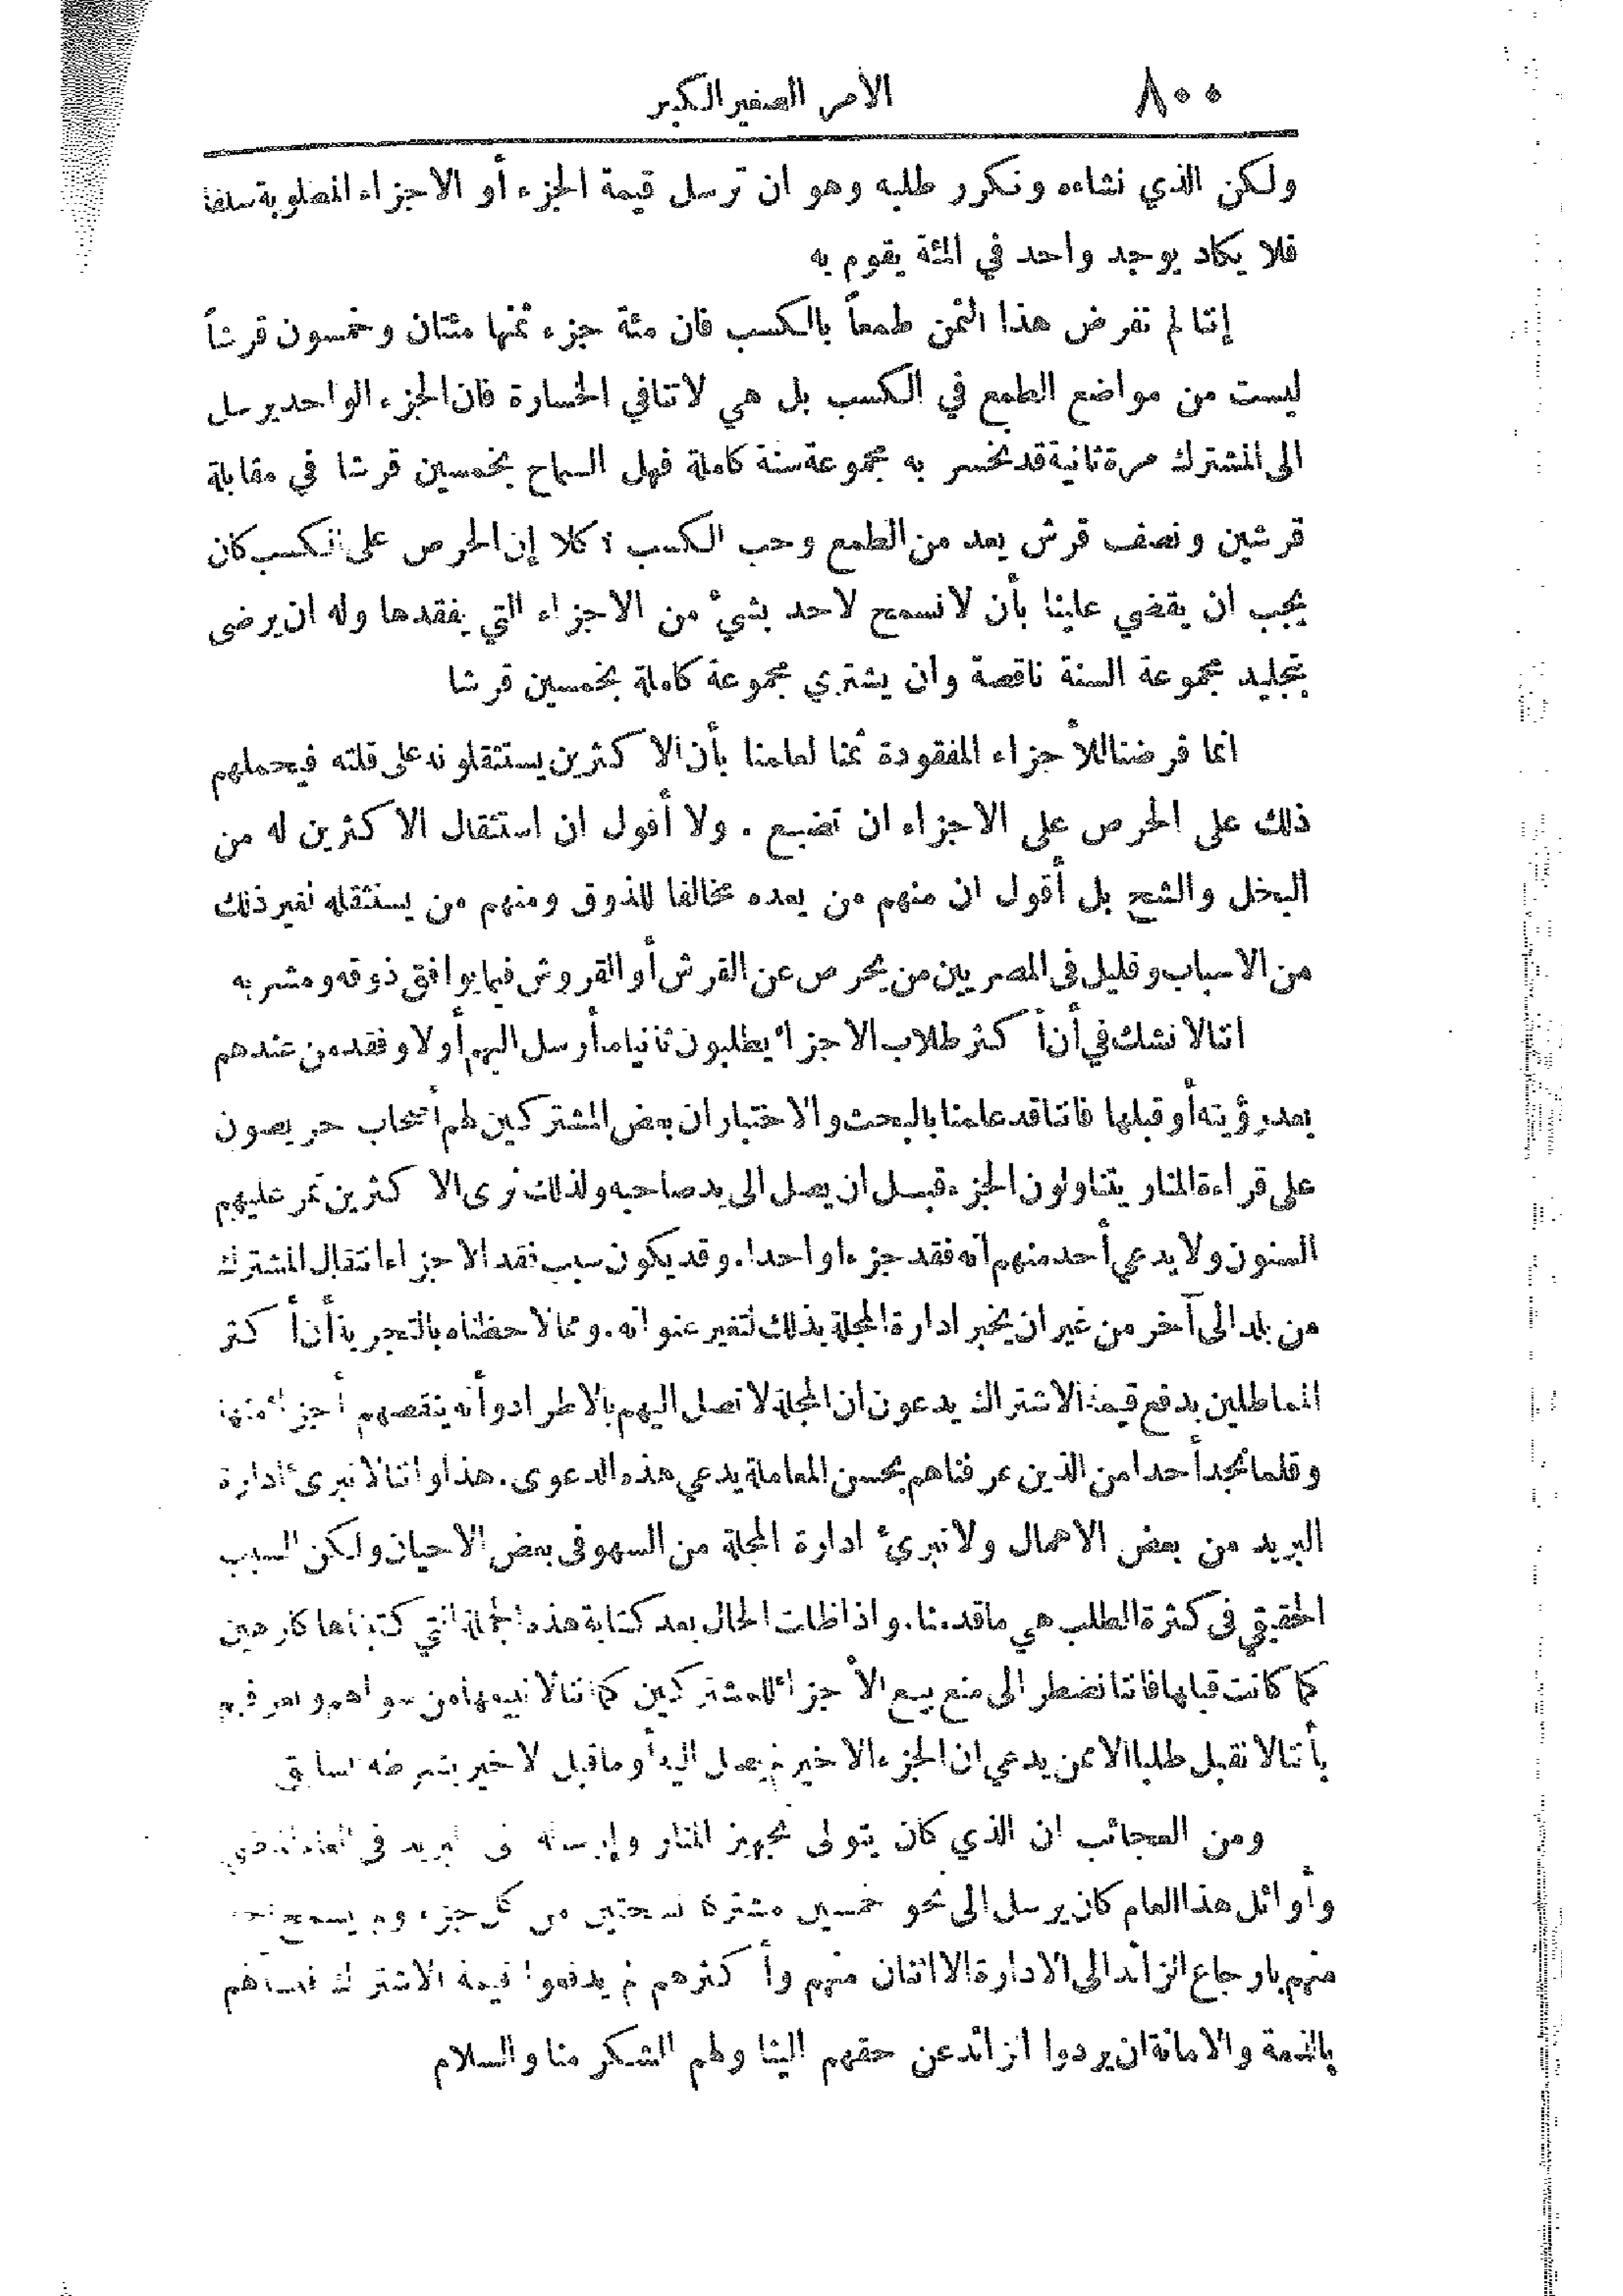 ٨٠٠ الأمر الصغير الكبير
ولكن الذي نشاءه ونكرر طلبه وهو ان ترسل قيمة الجزء أو الاجزاء المطلوبة سلفا
فلا يكاد يوجد واحد في المئة يقوم به
إننا لم نفرض هذا الثمن طمعاً بالكسب فان مئة جزء ثمنها مئتان وخمسون قرشاً
ليست من مواضع الطمع في الكسب بل هي لا تنافي الخسارة فان الجزء الواحد يرسل
الى المشترك مرة ثانية قد نخسر به مجموعة سنة كاملة فهل السماح بخمسين قرشا في مقابلة
قرشين ونصف قرش يعد من الطمع وحب الكسب ؟ كلا إن الحرص على الكسب كان
يجب ان يقضي علينا بأن لا نسمح لاحد بشيء من الاجزاء التي يفقدها وله ان يرضى
بتجليد مجموعة السنة ناقصة وان يشتري مجموعة كاملة بخمسين قرشا
انما فرضنا للأجزاء المفقودة ثمنا لعلمنا بأن الاكثرين يستثقلونه على قلته فيحملهم
ذلك على الحرص على الاجزاء ان تضيع . ولا أقول ان استثقال الاكثرين له من
البخل والشح بل أقول ان منهم من يعده مخالفا للذوق ومنهم من يستثقله لغير ذلك
من الاسباب وقليل في المصريين من يحرص عن القرش أو القروش فيما يوافق ذوقه ومشربه
اننا لا نشك في أن أكثر طلاب الاجزاء يطلبون ثانيا ما أرسل اليهم أولا وفقد من عندهم
بعد رؤيته أو قبلها فاننا قد علمنا بالبحث والاختبار ان بعض المشتركين لهم أصحاب حريصون
على قراءة المنار يتناولون الجزء قبل ان يصل الى يد صاحبه ولذلك نرى الاكثرين تمر عليهم
السنون ولا يدعي أحد منهم انه فقد جزءا واحدا . وقد يكون سبب فقد الاجزاء انتقال المشترك
من بلد الى آخر من غير ان يخبر ادارة المجلة بذلك لتغير عنوانه . ومما لاحظناه بالتجربة أن أكثر
المماطلين بدفع قيمة الاشتراك يدعون ان المجلة لا تصل اليهم بالاطراد وأنه ينقصهم أجزاء منها
وقلما نجد أحدا من الذين عرفناهم بحسن المعاملة يدعي هذه الدعوى . هذا واننا لا نبرئ ادارة
البريد من بعض الاهمال ولا نبرئ ادارة المجلة من السهو في بعض الاحيان ولكن السبب
الحقيقي في كثرة الطلب هي ما قدمنا . واذا ظلت الحال بعد كتابة هذه الجملة التي كتبناها كارهين
كما كانت قبلها فاننا نضطر الى منع بيع الأجزاء للمشتركين كما اننا لا نبيعها من سواهم
بأننا لا نقبل طلبا الا ممن يدعي ان الجزء الاخير لم يصل اليه أو ما قبل الاخير بشرطه السابق
ومن العجائب ان الذي كان يتولى تجهيز المنار وإرساله في البريد في
وأوائل هذا العام كان يرسل الى نحو خمسين مشتركا نسختين من كل جزء ولم يسمح أحد
منهم بارجاع الزائد الى الادارة الا اثنان منهم وأكثرهم لم يدفعوا قيمة الاشتراك فنسألهم
بالذمة والامانة ان يردوا الزائد عن حقهم الينا ولهم الشكر منا والسلام